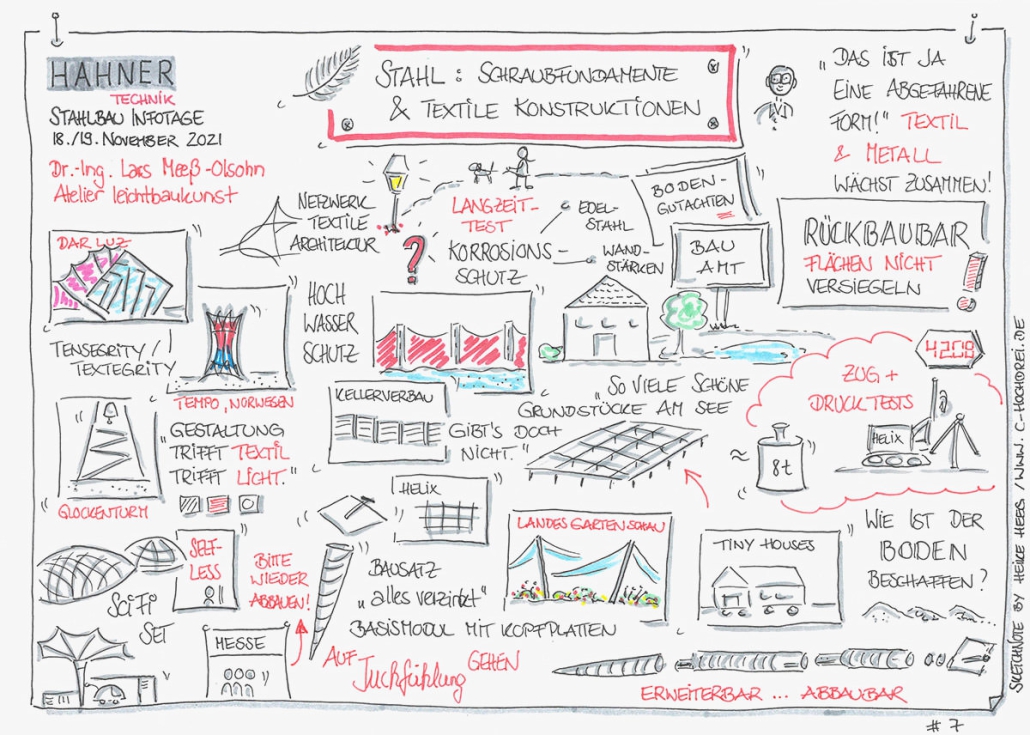 HAHNER
TECHNIK
STAHLBAU INFOTAGE
18./19. NOVEMBER 2021
Dr.-Ing. Lars Meeß-Olsohn
Atelier leichtbaukunst
STAHL: SCHRAUBFUNDAMENTE
& TEXTILE KONSTRUKTIONEN
„DAS IST JA
EINE ABGEFAHRENE
FORM!" TEXTIL
& METALL
WÄCHST ZUSAMMEN!
NETZWERK
TEXTILE
ARCHITEKTUR
LANGZEIT-
TEST
?
KORROSIONS-
SCHUTZ
EDEL-
STAHL
WAND-
STÄRKEN
BODEN-
GUTACHTEN
BAU
AMT
RÜCKBAUBAR
FLÄCHEN NICHT
VERSIEGELN
!
DAR LUZ
TENSEGRITY /
TEXTEGRITY
!
TEMPO, NORWEGEN
HOCH
WASSER
SCHUTZ
KELLERVERBAU
„SO VIELE SCHÖNE
GRUNDSTÜCKE AM SEE
GIBT'S DOCH
NICHT."
4208
ZUG +
DRUCKTESTS
HELIX
≈ 8t
GLOCKENTURM
„GESTALTUNG
TRIFFT TEXTIL
TRIFFT LICHT."
HELIX
LANDESGARTENSCHAU
TINY HOUSES
WIE IST DER
BODEN
BESCHAFFEN?
SELF-
LESS
SCIFI
SET
BITTE
WIEDER
ABBAUEN!
BAUSATZ
„alles verzinkt"
BASISMODUL MIT KOPFPLATTEN
MESSE
AUF
Tuchfühlung
GEHEN
ERWEITERBAR ... ABBAUBAR
SKETCHNOTE BY HEIKE HEEG / WWW.C-HOCHDREI.DE
#7